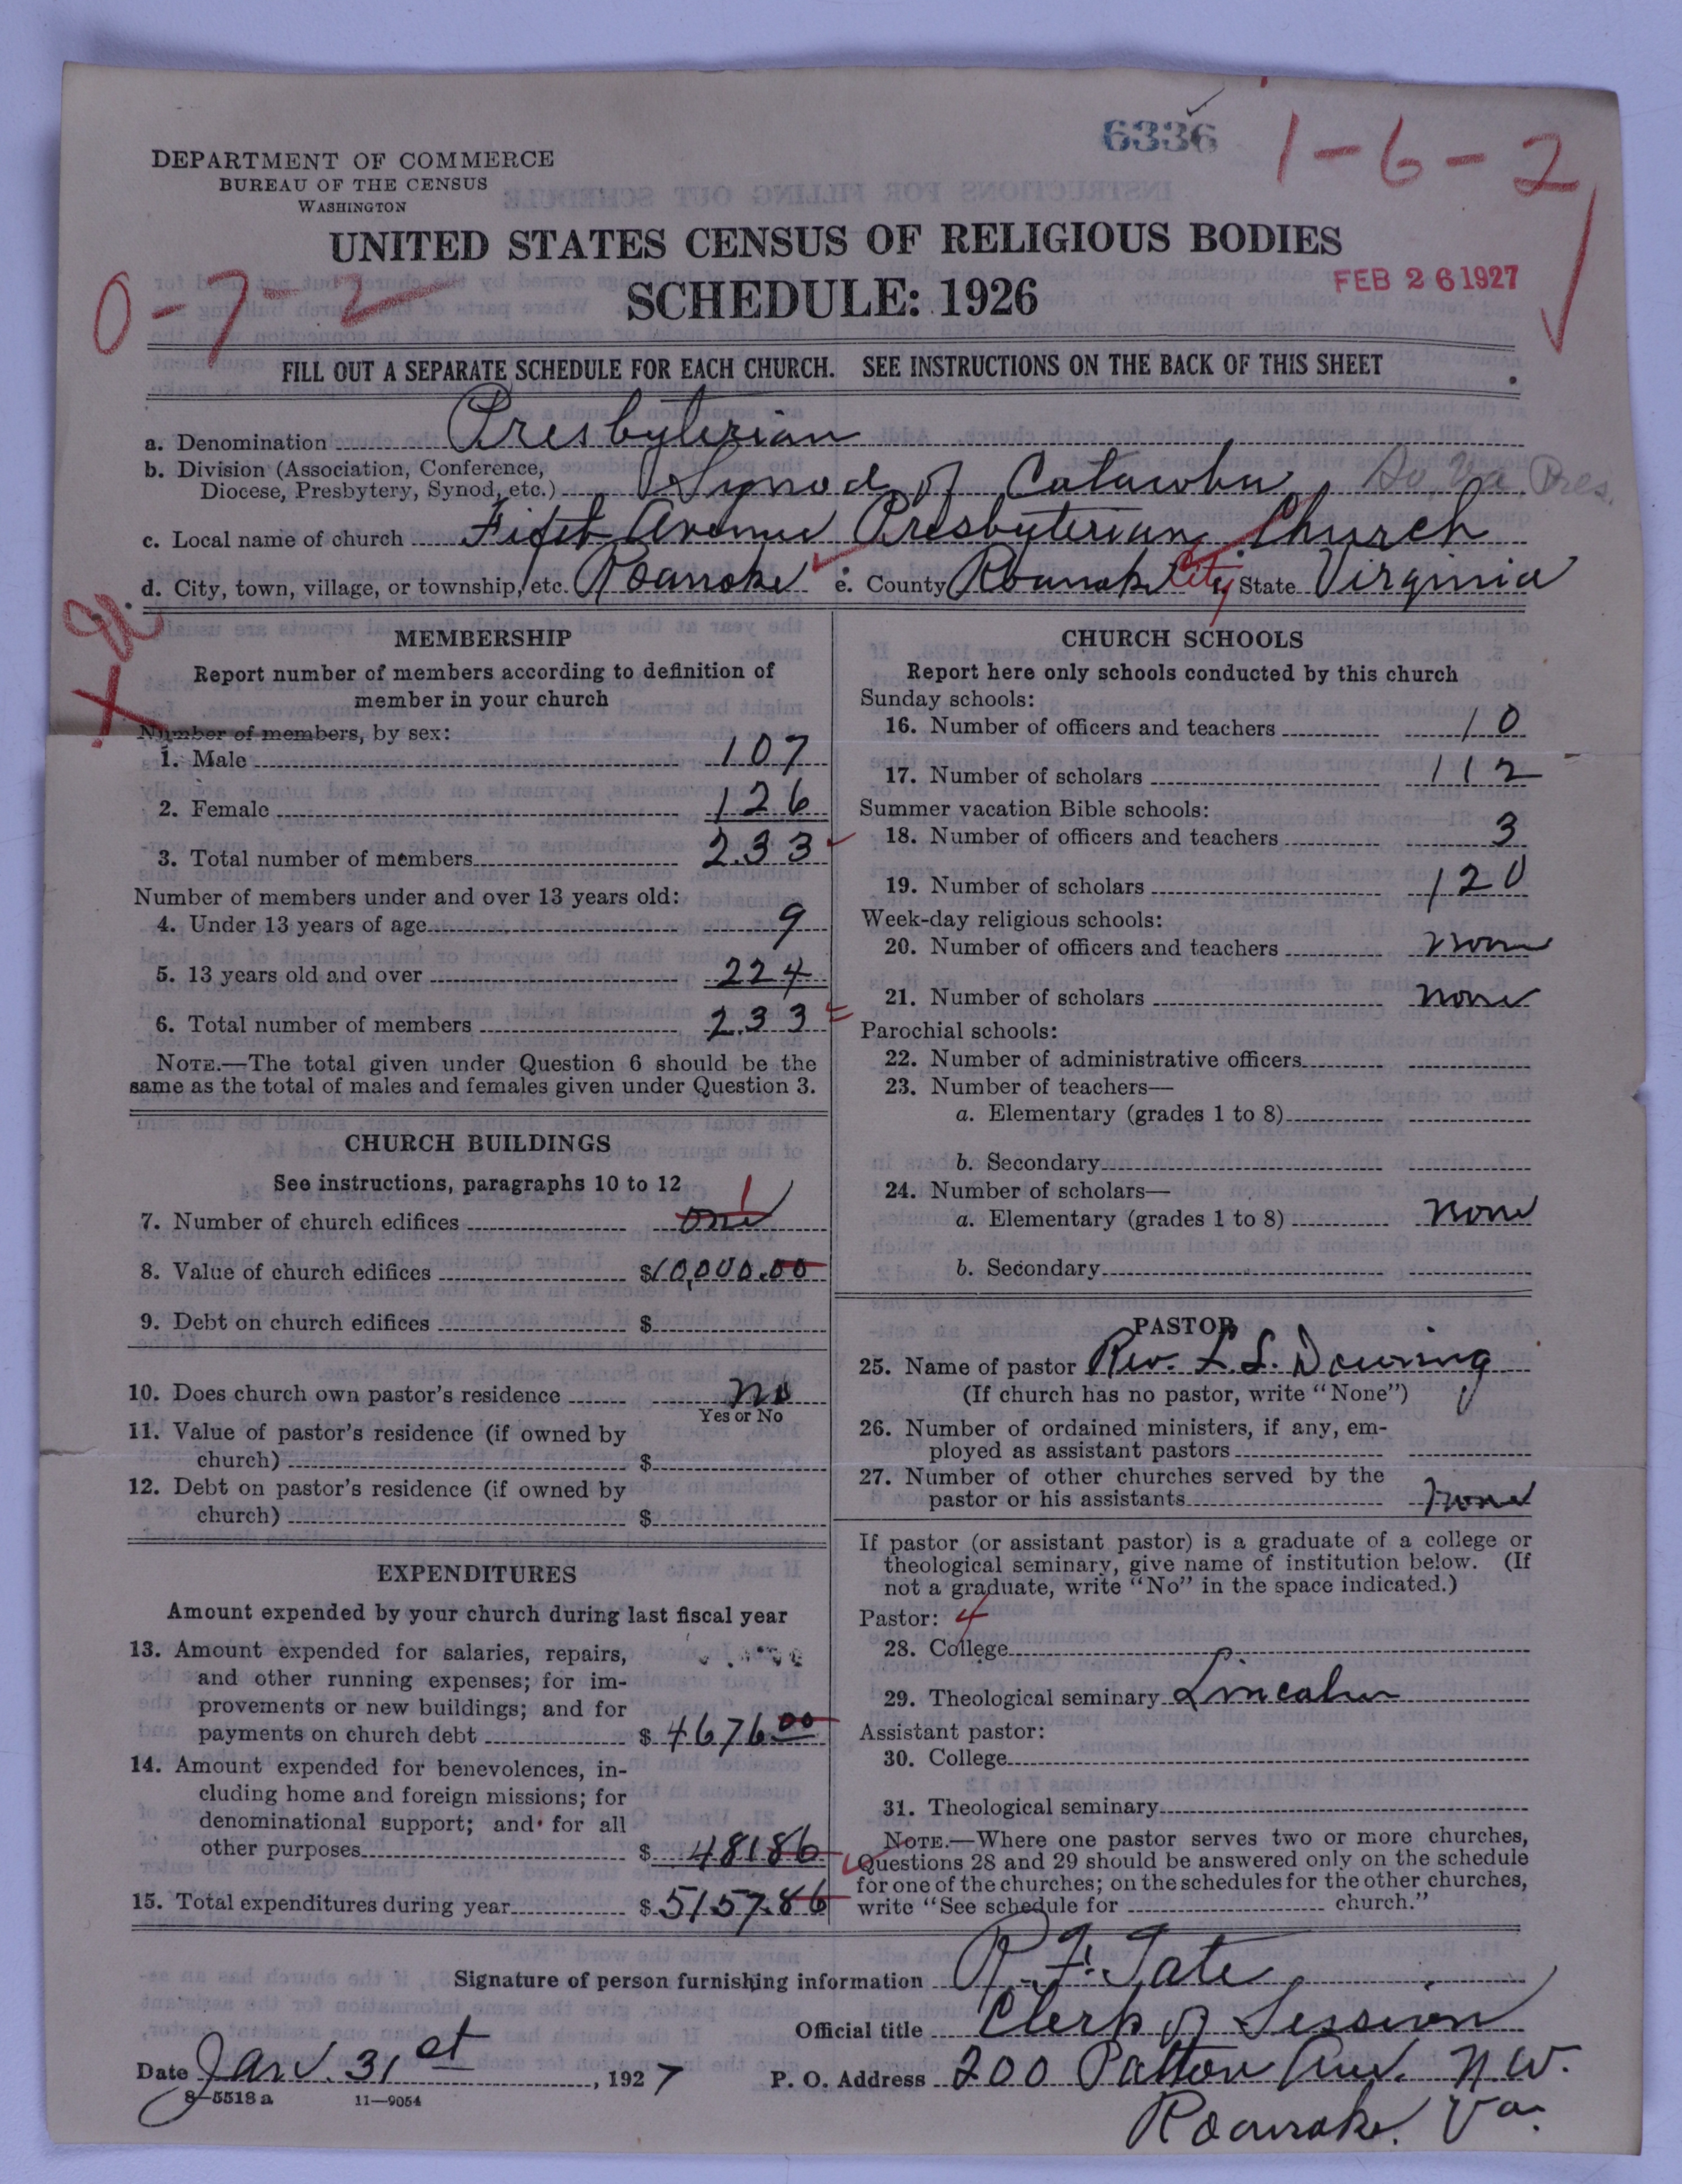 6336
1-6-2
DEPARTMENT OF COMMERCE
BUREAU OF THE CENSUS
WASHINGTON
UNITED STATES CENSUS OF RELIGIOUS BODIES
SCHEDULE: 1926
FEB 26 1927
0-7-2
FILL OUT A SEPARATE SCHEDULE FOR EACH CHURCH. SEE INSTRUCTIONS ON THE BACK OF THIS SHEET
a. Denomination Presbyterian
b. Division (Association, Conference,
Diocese, Presbytery, Synod, etc.) Synod of Catawba So. Va. Pres.
c. Local name of church Fifth Avenue Presbyterian Church
d. City, town, village, or township, etc. Roanoke e. County Roanoke City f. State Virginia
MEMBERSHIP
Report number of members according to definition of
member in your church
Number of members, by sex:
1. Male 107
2. Female 126
3. Total number of members 233
Number of members under and over 13 years old:
4. Under 13 years of age 9
5. 13 years old and over 224
6. Total number of members 233
NOTE.—The total given under Question 6 should be the
same as the total of males and females given under Question 3.
CHURCH BUILDINGS
See instructions, paragraphs 10 to 12
1
7. Number of church edifices one
8. Value of church edifices $10,000.00
9. Debt on church edifices $
10. Does church own pastor's residence no
Yes or No
11. Value of pastor's residence (if owned by
church) $
12. Debt on pastor's residence (if owned by
church) $
EXPENDITURES
Amount expended by your church during last fiscal year
13. Amount expended for salaries, repairs,
and other running expenses; for im-
provements or new buildings; and for
payments on church debt $ 4676 00
14. Amount expended for benevolences, in-
cluding home and foreign missions; for
denominational support; and for all
other purposes $ 481 86
15. Total expenditures during year $ 5157.86
CHURCH SCHOOLS
Report here only schools conducted by this church
Sunday schools:
16. Number of officers and teachers 10
17. Number of scholars 112
Summer vacation Bible schools:
18. Number of officers and teachers 3
19. Number of scholars 120
Week-day religious schools:
20. Number of officers and teachers none
21. Number of scholars none
Parochial schools:
22. Number of administrative officers
23. Number of teachers—
a. Elementary (grades 1 to 8)
b. Secondary
24. Number of scholars—
a. Elementary (grades 1 to 8) none
b. Secondary
PASTOR
25. Name of pastor Rev. L. L. Downing
(If church has no pastor, write "None")
26. Number of ordained ministers, if any, em-
ployed as assistant pastors
27. Number of other churches served by the
pastor or his assistants none
If pastor (or assistant pastor) is a graduate of a college or
theological seminary, give name of institution below. (If
not a graduate, write "No" in the space indicated.)
Pastor: 4
28. College
29. Theological seminary Lincoln
Assistant pastor:
30. College
31. Theological seminary
NOTE.—Where one pastor serves two or more churches,
Questions 28 and 29 should be answered only on the schedule
for one of the churches; on the schedules for the other churches,
write "See schedule for church."
Signature of person furnishing information R. F. Tate
Official title Clerk of Session
Date Jan. 31st, 1927 P. O. Address 200 Patton Ave. N.W.
Roanoke, Va.
8-5518 a 11-9054